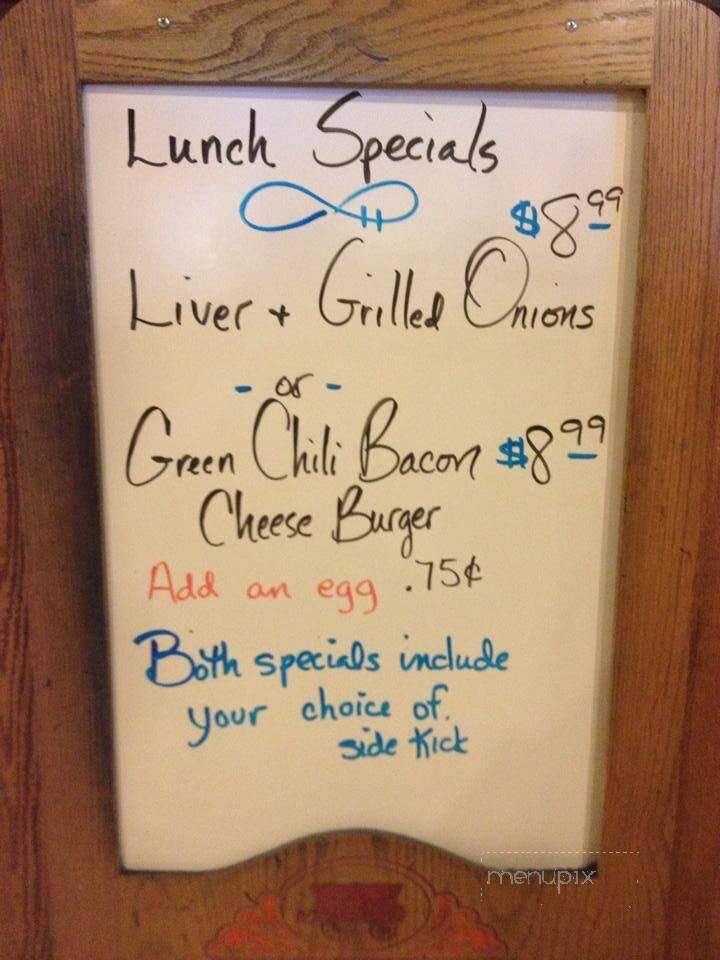 Lunch Specials
$8.99
Liver + Grilled Onions
- or -
Green Chili Bacon $8.99
Cheese Burger
Add an egg .75¢
Both specials include
your choice of.
side Kick
menupix